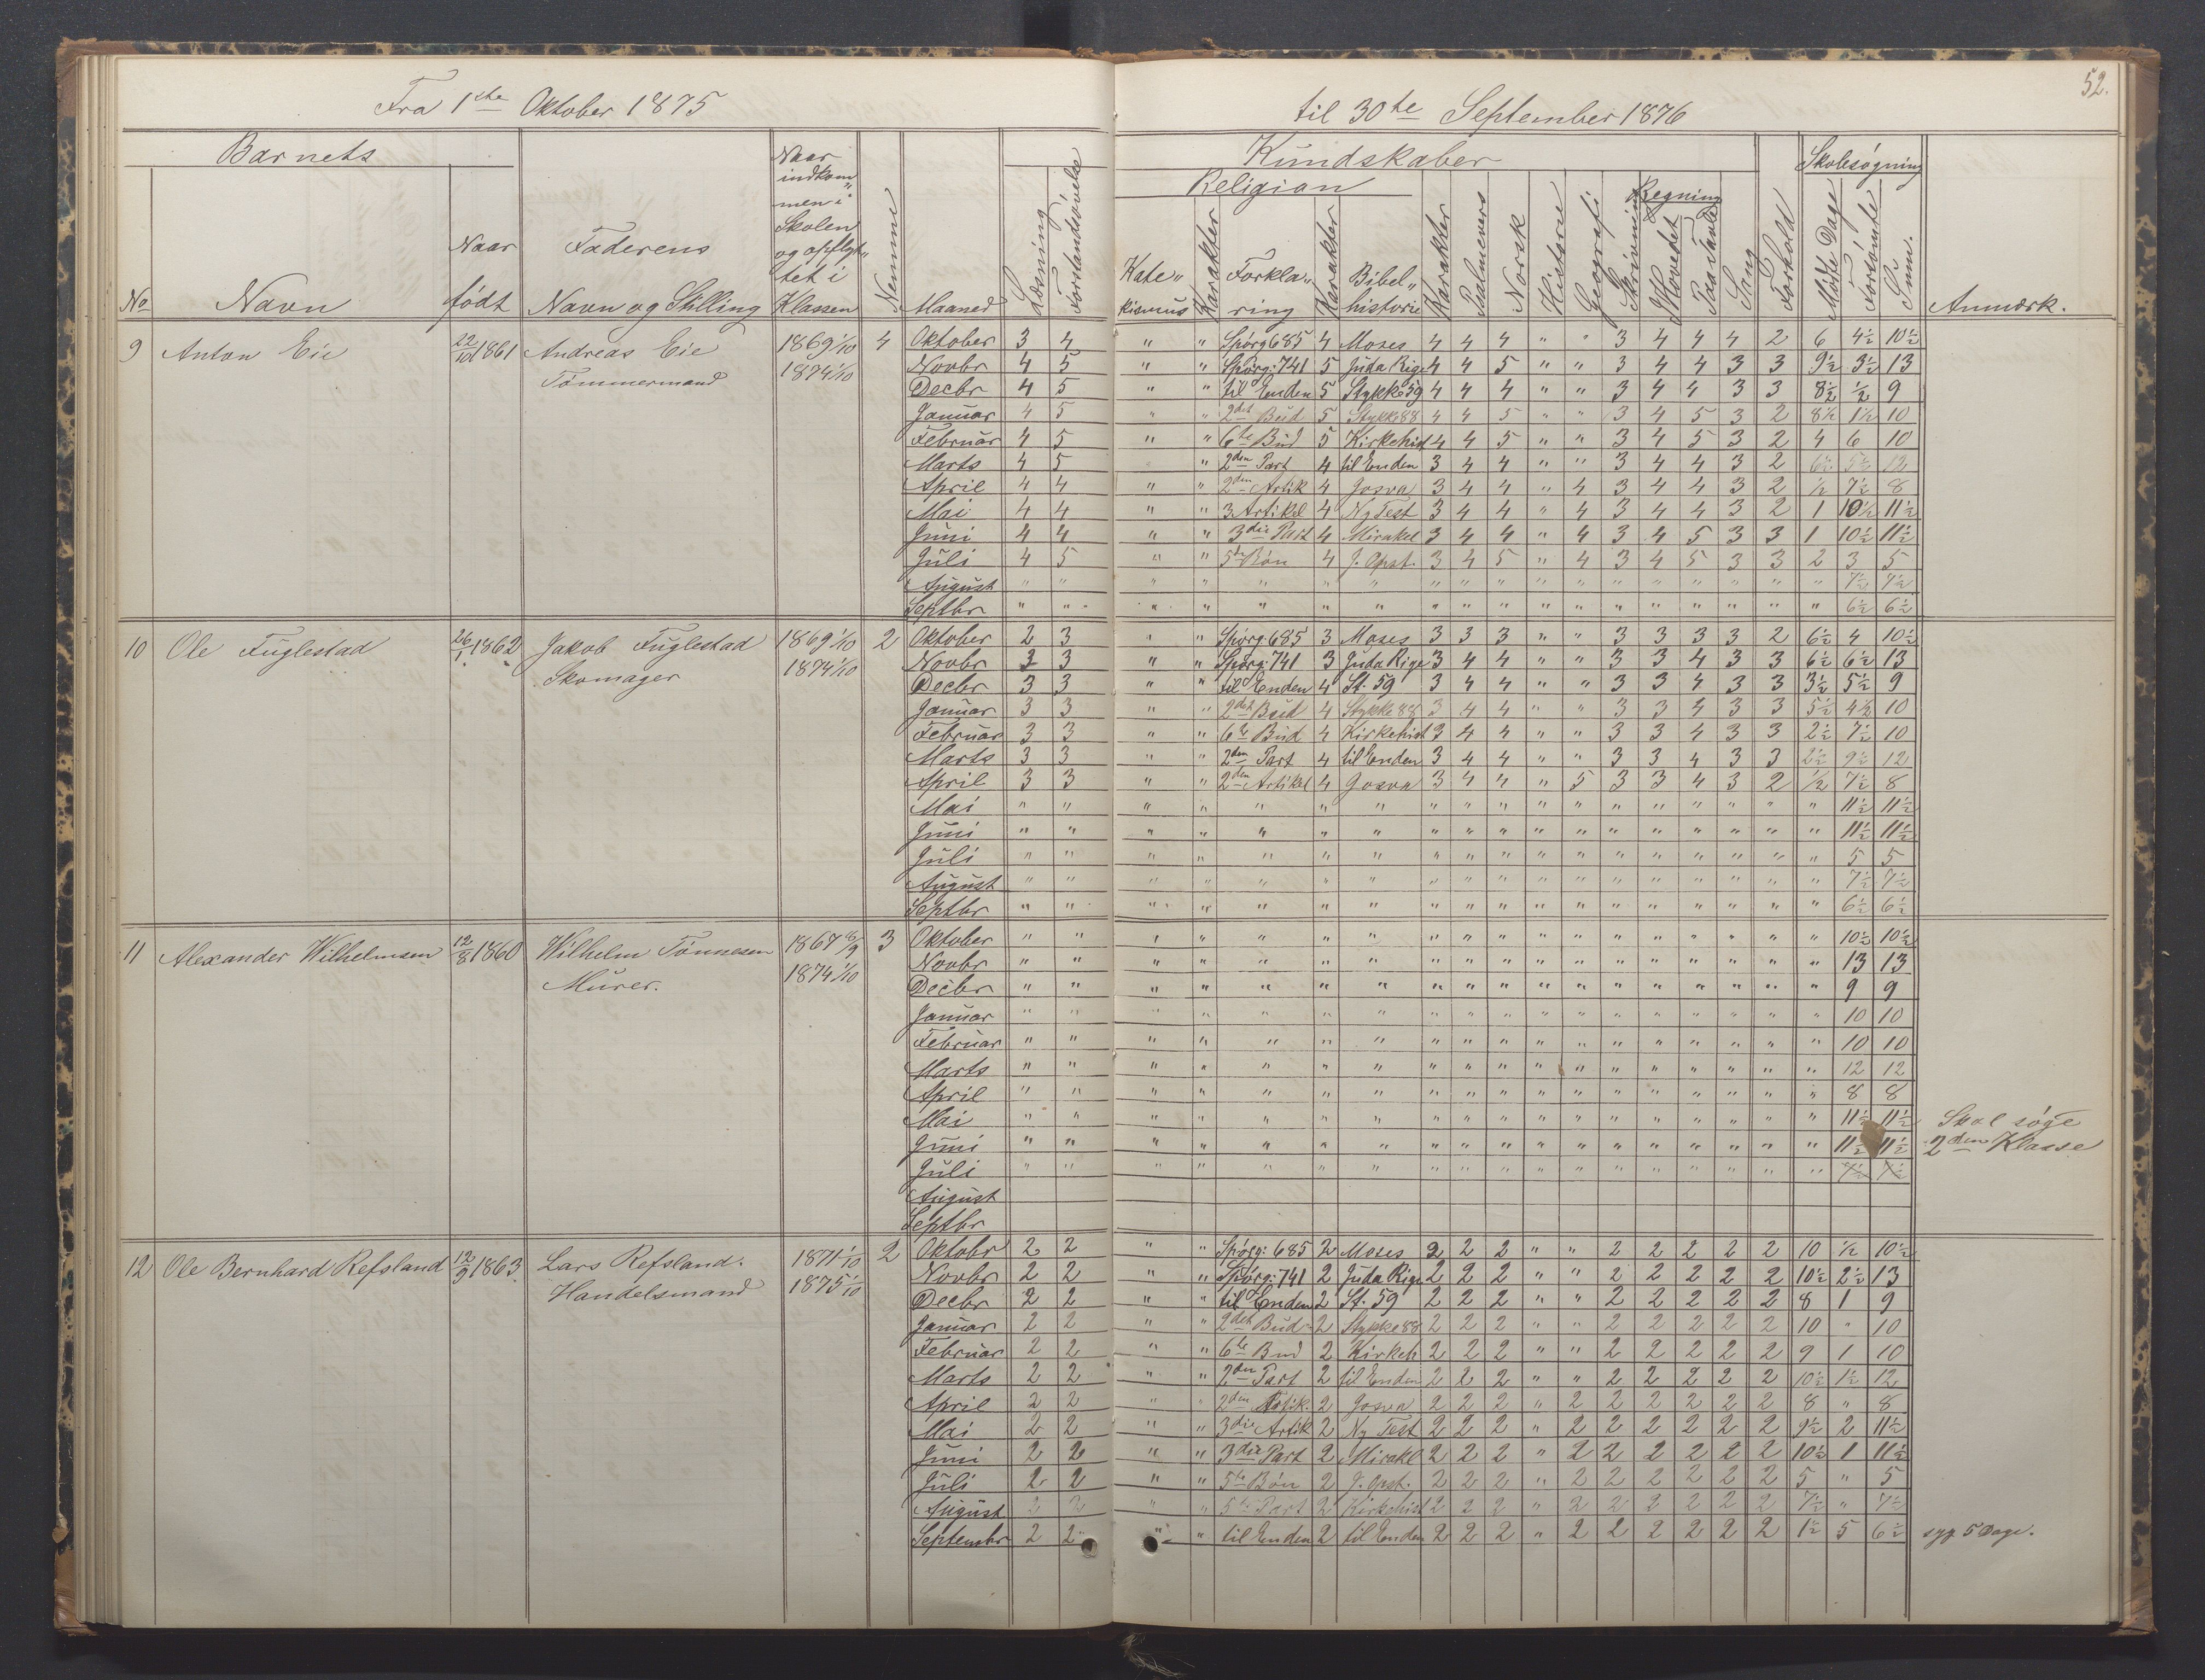 52.
Fra 1ste Oktober 1875 til 30te September 1876
Barnets
No Navn
Naar født
Faderens Navn og Stilling
Naar indkom„ men i Skolen og opflyt„ tet i Klassen
Nemme
Maaned
Læsning
Forstandsøvelse
Kundskaber
Religion
Kate„ kismus
Karakter
Forkla„ ring
Karakter
Bibel„ historie
Karakter
Psalmevers
Norsk
Historie
Geografi
Skrivning
Regning
I Hovedet
Paa Tavle
Sang
Forhold
Skolesøgning
Mødte Dage
Forsømte
Sum.
Anmærk.
9 Anton Eie 22/10 1861 Andreas Eie Tømmermand 1869 1/10 1874 1/10 4
Oktober 3 4 " " Spørg 685 4 Moses 4 4 4 " " 3 4 4 4 2 6 4½ 10½
Novbr 4 5 " " Spørg: 741 5 Juda Rige 4 4 5 " " 3 4 4 3 3 9½ 3½ 13
Decbr 4 5 " " til Enden 5 Stykke 59 4 4 4 " " 3 4 4 3 3 8½ ½ 9
Januar 4 5 " " 2det Bud 5 Stykke 88 4 4 5 " " 3 4 5 3 2 8½ 1½ 10
Februar 4 5 " " 6te Bud 5 Kirkehist 4 4 5 " " 3 4 5 3 2 4 6 10
Marts 4 5 " 2den Part 4 til Enden 3 4 4 " " 3 4 4 3 2 6½ 5½ 12
April 4 4 " " 2den Artik 4 Josva 3 4 4 " 4 3 4 4 3 2 ½ 7½ 8
Mai 4 4 " " 3. Artikel 4 Ny Test 3 4 4 " 4 3 4 4 3 2 1 10½ 11½
Juni 4 4 " " 3die Part 4 Mirakel 3 4 4 " 4 3 4 5 3 3 1 10½ 11½
Juli 4 5 " " 5te Bøn 4 J. Opst. 3 4 5 " 4 3 4 5 3 3 2 3 5
August " " " " " " " " " " " " " " " " " " " 7½ 7½
Septbr " " " " " " " " " " " " " " " " " " " 6½ 6½
10 Ole Fuglestad 26/1 1862 Jakob Fuglestad Skomager 1869 1/10 1874 1/10 2
Oktober 2 3 " " Spørg: 685 3 Moses 3 3 3 " " 3 3 3 3 2 6½ 4 10½
Novbr 3 3 " " Spørg: 741 3 Juda Rige 3 4 4 " " 3 3 4 3 3 6½ 6½ 13
Decbr 3 3 " " til Enden 4 St. 59 3 4 4 " " 3 3 4 3 3 3½ 5½ 9
Januar 3 3 " " 2det Bud 4 Stykke 88 3 4 4 " " 3 3 4 3 3 5½ 4½ 10
Februar 3 3 " " 6te Bud 4 Kirkehist 3 4 4 " " 3 3 4 3 3 2½ 7½ 10
Marts 3 3 " " 2den Part 4 til Enden 3 4 4 " " 3 3 4 3 3 2½ 9½ 12
April 3 3 " " 2den Artikel 4 Josva 3 4 4 " 5 3 3 4 3 2 ½ 7½ 8
Mai " " " " " " " " " " " " " " " " " " " 11½ 11½
Juni " " " " " " " " " " " " " " " " " " " 11½ 11½
Juli " " " " " " " " " " " " " " " " " " " 5 5
August " " " " " " " " " " " " " " " " " " " 7½ 7½
Septbr " " " " " " " " " " " " " " " " " " " 6½ 6½
11 Alexander Wilhelmsen 12/8 1860 Wilhelm Tønnesen Murer. 1867 8/9 1874 1/10 3
Oktober " " " " " " " " " " " " " " " " " " " 10½ 10½
Novbr " " " " " " " " " " " " " " " " " " " 13 13
Decbr " " " " " " " " " " " " " " " " " " " 9 9
Januar " " " " " " " " " " " " " " " " " " " 10 10
Februar " " " " " " " " " " " " " " " " " " " 10 10
Marts " " " " " " " " " " " " " " " " " " " 12 12
April " " " " " " " " " " " " " " " " " " " 8 8
Mai " " " " " " " " " " " " " " " " " " " 11½ 11½ Skal søge
Juni " " " " " " " " " " " " " " " " " " " 11½ 11½ 2den Klasse
Juli " " " " " " " " " " " " " " " " " " "
August
Septbr
12 Ole Bernhard Refsland 12/9 1863 Lars Refsland. Handelsmand 1871 1/10 1875 1/10 2
Oktobr 2 2 " " Spørg: 685 2 Moses 2 2 2 " " 2 2 2 2 2 10 ½ 10½
Novbr 2 2 " " Spørg: 741 2 Juda Rige 2 2 2 " " 2 2 2 2 2 10½ 2½ 13
Decbr 2 2 " " til Enden 2 St. 59 2 2 2 " " 2 2 2 2 2 8 1 9
Januar 2 2 " " 2det Bud 2 Stykke 88 2 2 2 " " 2 2 2 2 2 10 " 10
Februar 2 2 " " 6te Bud 2 Kirkeh 2 2 2 " " 2 2 2 2 2 9 1 10
Marts 2 2 " " 2den Part 2 til Enden 2 2 2 " " 2 2 2 2 2 10½ 1½ 12
April 2 2 " " 2den Artik. 2 Josva 2 2 2 " 2 2 2 2 2 2 8 " 8
Mai 2 2 " " 3die Artik 2 Ny Test 2 2 2 " 2 2 2 2 2 2 9½ 2 11½
Juni 2 2 " " 3die Part 2 Mirakl 2 2 2 " 2 2 2 2 2 2 10½ 1 11½
Juli 2 2 " " 5te Bøn 2 J. Opst. 2 2 2 " 2 2 2 2 2 2 5 " 5
August 2 2 " " 5te Part 2 Kirkehist 2 2 2 " 2 2 2 2 2 2 7½ " 7½
Septembr 2 2 " " til Enden 2 til Enden 2 2 2 " 2 2 2 2 2 2 1½ 5 6½ syg 5 Dage.